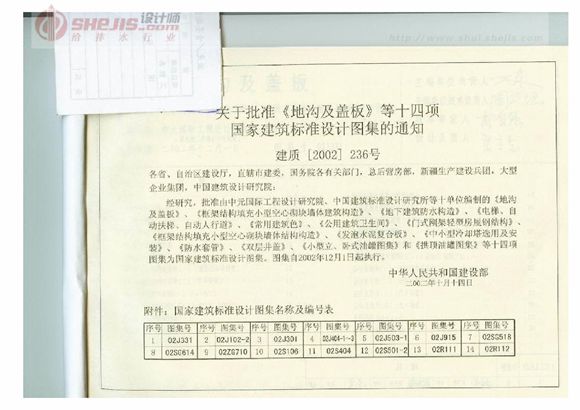 SHEJIS.COM 设计师
给排水行业
http://shui.shejis.com
沟及盖板
关于批准《地沟及盖板》等十四项
国家建筑标准设计图集的通知
建质 [2002] 236号
各省、自治区建设厅，直辖市建委，国务院各有关部门，总后营房部，新疆生产建设兵团，大型
企业集团，中国建筑设计研究院：
经研究，批准由中元国际工程设计研究院、中国建筑标准设计研究所等十单位编制的《地沟
及盖板》、《框架结构填充小型空心砌块墙体建筑构造》、《地下建筑防水构造》、《电梯、自
动扶梯、自动人行道》、《常用建筑色》、《公用建筑卫生间》、《门式刚架轻型房屋钢结构》、
《框架结构填充小型空心砌块墙体结构构造》、《发泡水泥复合板》、《中小型冷却塔选用及安
装》、《防水套管》、《双层井盖》、《小型立、卧式油罐图集》和《拱顶油罐图集》等十四项
图集为国家建筑标准设计图集。图集自2002年12月1日起执行。
中华人民共和国建设部
二00二年十月十四日
附件：国家建筑标准设计图集名称及编号表
序号 图集号 序号 图集号 序号 图集号 序号 图集号 序号 图集号 序号 图集号 序号 图集号
1 02J331 2 02J102-2 3 02J301 4 02J404-1~3 5 02J503-1 6 02J915 7 02SG518
8 02SG614 9 02ZG710 10 02S106 11 02S404 12 02S501-2 13 02R111 14 02R112